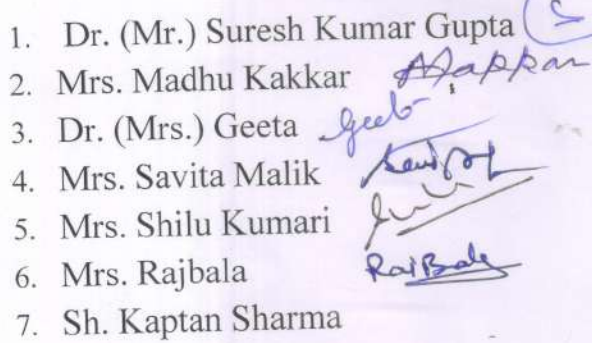 1. Dr. (Mr.) Suresh Kumar Gupta
2. Mrs. Madhu Kakkar
3. Dr. (Mrs.) Geeta Geeta
4. Mrs. Savita Malik
5. Mrs. Shilu Kumari
6. Mrs. Rajbala RajBala
7. Sh. Kaptan Sharma